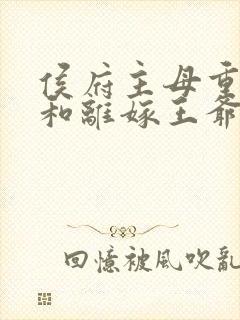 侯府主母重
和離嫁王爺
回憶被風吹亂